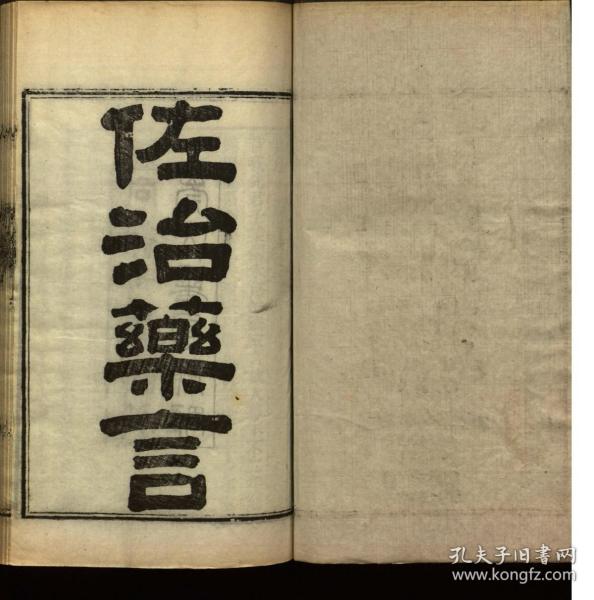 佐治藥言
孔夫子旧书网
www.kongfz.com